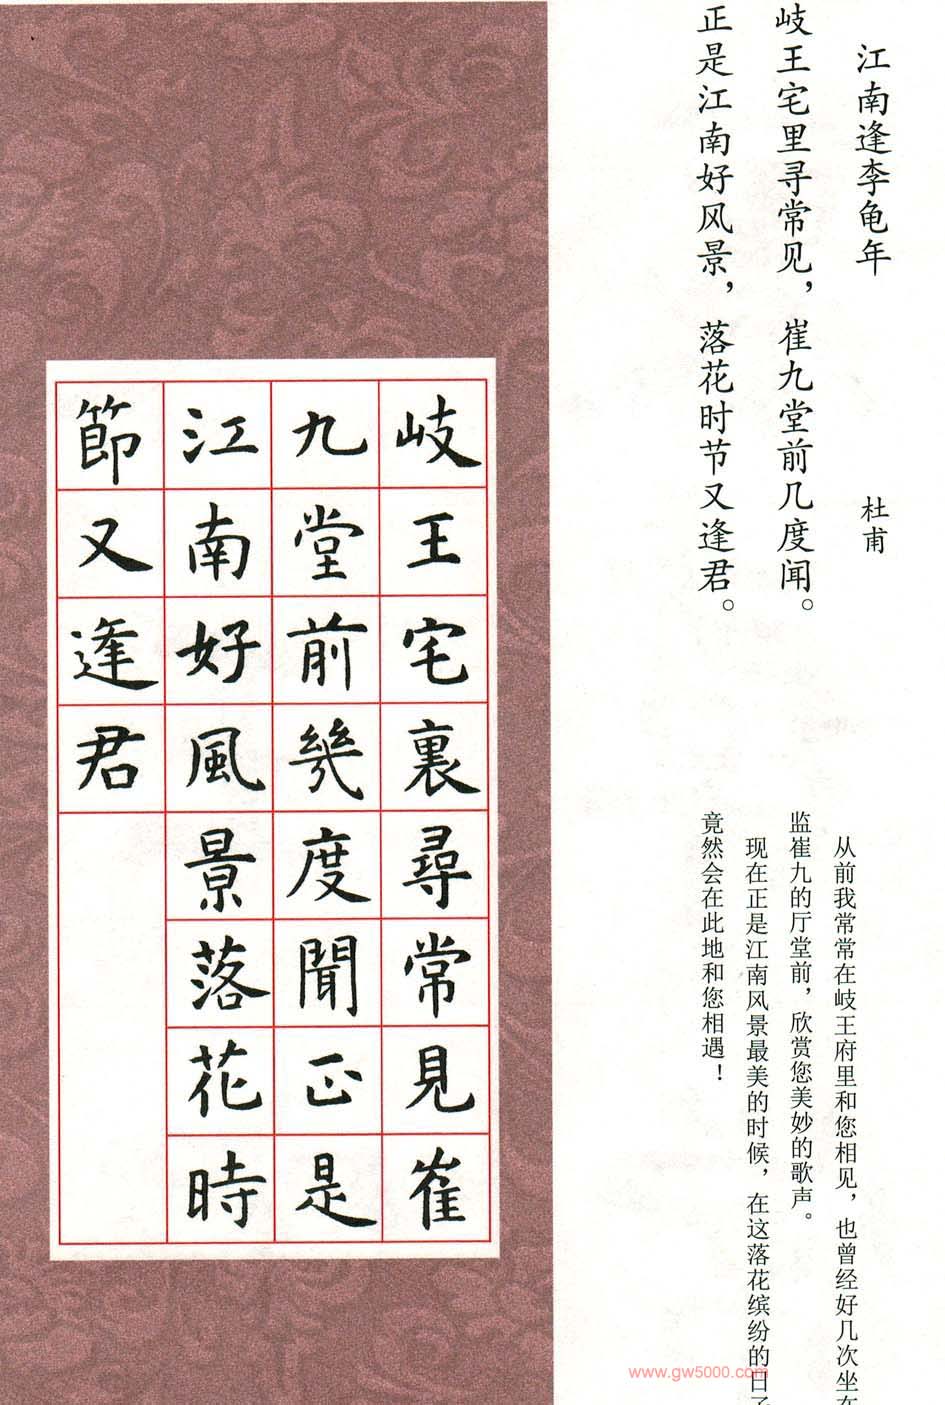 江南逢李龟年
杜甫
岐王宅里寻常见，崔九堂前几度闻。
正是江南好风景，落花时节又逢君。
从前我常常在岐王府里和您相见，也曾经好几次坐在
监崔九的厅堂前，欣赏您美妙的歌声。
现在正是江南风景最美的时候，在这落花缤纷的日子
竟然会在此地和您相遇！
岐王宅裏尋常見崔
九堂前幾度聞正是
江南好風景落花時
節又逢君
www.gw5000.com